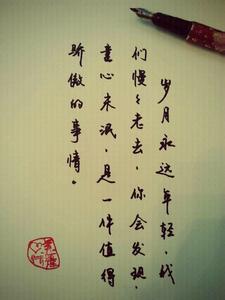 岁月永远年轻，我
们慢々老去，你会发现，
童心未泯，是一件值得
骄傲的事情。